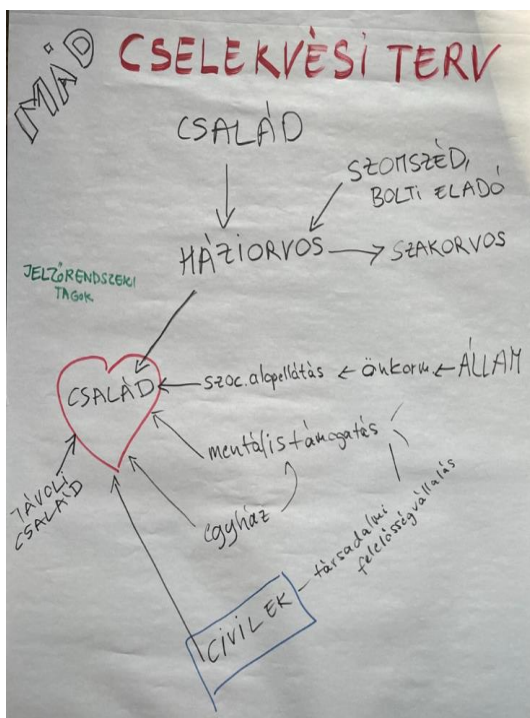 MÁD
CSELEKVÈSI TERV
CSALÁD
SZOMSZÉD,
BOLTI ELADÓ
HÁZIORVOS
SZAKORVOS
JELZŐRENDSZERI
TAGOK
CSALÁD
szoc. alapellátás
önkorm
ÁLLAM
mentális támogatás
TÁVOLI
CSALÁD
egyház
társadalmi
felelősségvállalás
CIVILEK